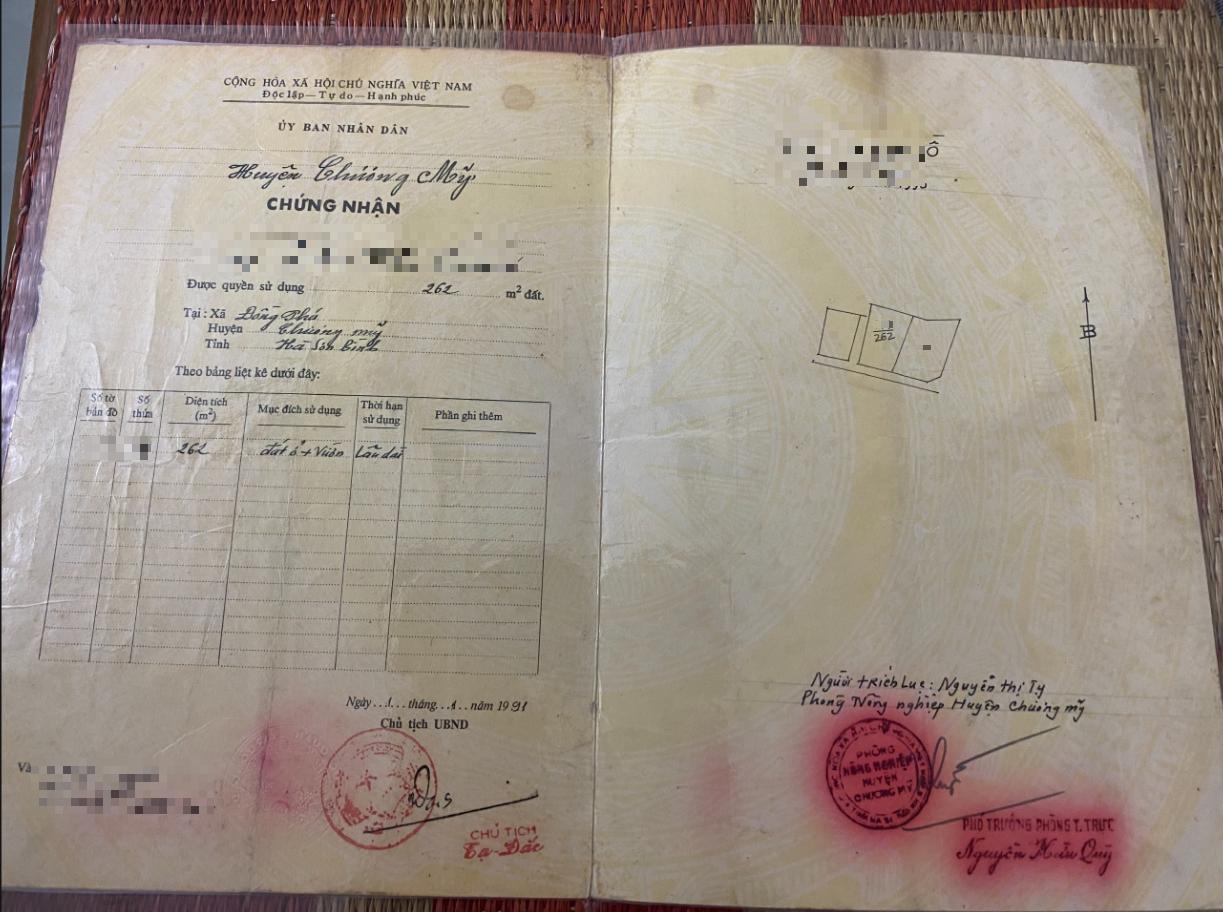 CỘNG HÒA XÃ HỘI CHỦ NGHĨA VIỆT NAM
Độc lập — Tự do — Hạnh phúc
ỦY BAN NHÂN DÂN
Huyện Chương Mỹ
CHỨNG NHẬN
Được quyền sử dụng 262 m² đất.
Tại : Xã Đông
Huyện Chương mỹ
Tỉnh Hà Sơn Bình
Theo bảng liệt kê dưới đây:
Số tờ bản đồ Số thửa Diện tích (m²) Mục đích sử dụng Thời hạn sử dụng Phần ghi thêm
262 đất ở + Vườn Lâu dài
Ngày 1 tháng 1 năm 1991
Chủ tịch UBND
CHỦ TỊCH
Tạ-Đắc
262
B
Người trích Lục: Nguyễn thị Ty
Phòng Nông nghiệp Huyện Chương mỹ
PHÒNG
NÔNG NGHIỆP
HUYỆN
CHƯƠNG MỸ
PHÓ TRƯỞNG PHÒNG T. TRỰC
Nguyễn Quý